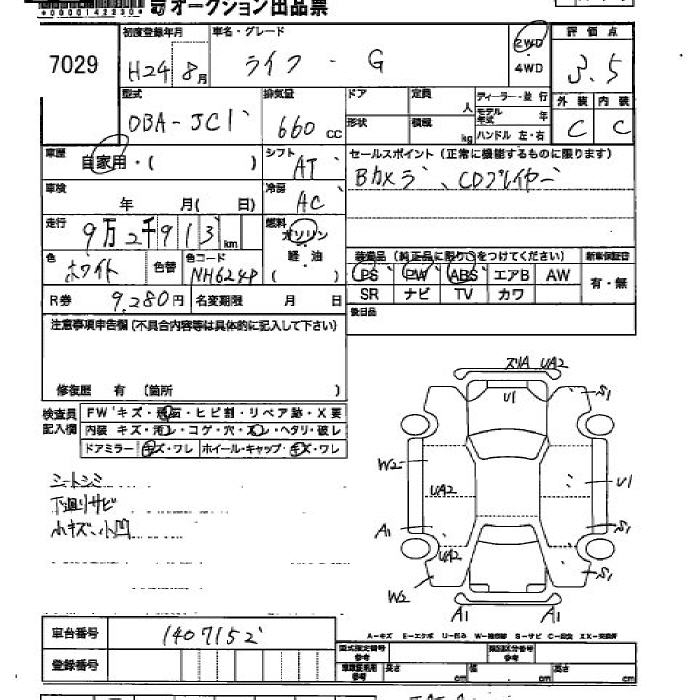 オークション出品票
*0000142230*
7029
初度登録年月 H24 8月
車名・グレード ライフ - G
2WD
4WD
評価点 3.5
型式 DBA-JC1
排気量 660 cc
ドア
形状
定員 人
積載 kg
ディーラー・並行
モデル年式 年
ハンドル 左・右
外装 C
内装 C
車歴 自家用・( )
シフト AT
セールスポイント (正常に機能するものに限ります)
Bカメラ、CDプレイヤー
車検 年 月( 日)
冷房 AC
走行 9万2千913km
燃料 ガソリン
軽・油
( )
色 ホワイト
色替
色コード NH624P
装備品 (純正品に限り○をつけてください)
新車保証書
PS PW ABS エアB AW
有・無
SR ナビ TV カワ
R券 9,280円
名変期限 月 日
後日品
注意事項申告欄(不具合内容等は具体的に記入して下さい)
修復歴 有 (箇所 )
検査員記入欄
FW キズ・飛石・ヒビ割・リペア跡・X要
内装 キズ・汚レ・コゲ・穴・スレ・ヘタリ・破レ
ドアミラー キズ・ワレ ホイール・キャップ・キズ・ワレ
シートシミ
下廻りサビ
小キズ、小凹
ズリA UA2
U1
S1
W2
UA2
U1
A1
S1
UA2
W2
S1
A1
A1
A-キズ E-エクボ U-凹み W-補修跡 S-サビ C-腐食 XX-交換済
車台番号 1407152
登録番号
型式指定番号 参考
類別区分番号 参考
参考 長さ cm 幅 cm 高さ cm